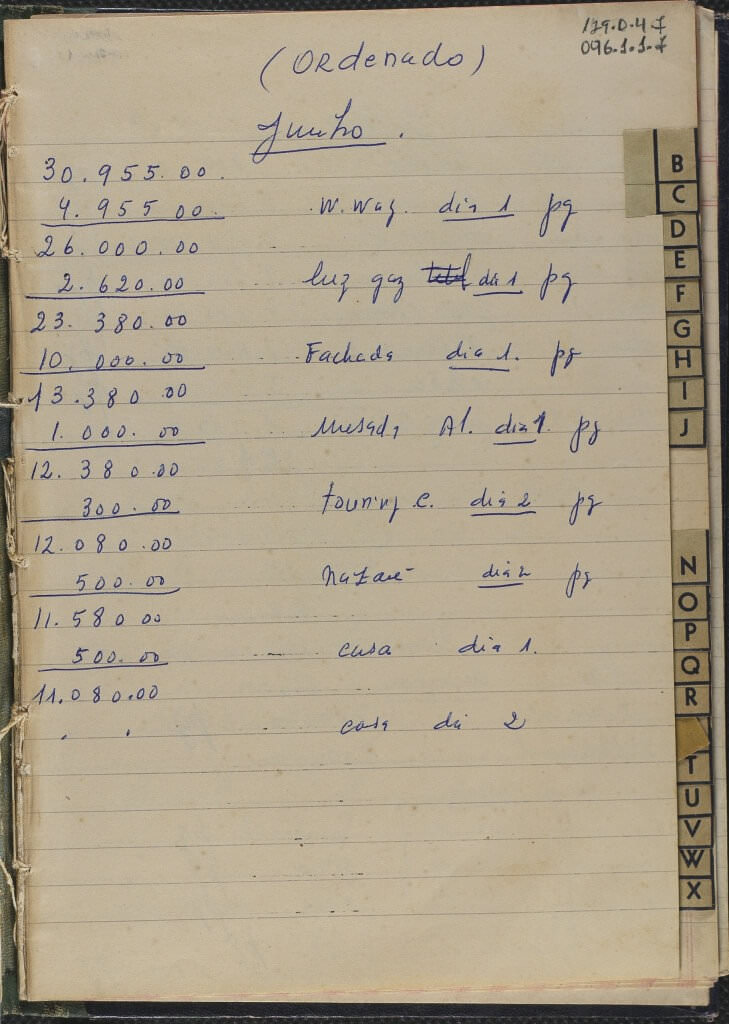 179.0.4.7
096.1.1.7
(Ordenado)
Junho.
30.955.00.
4.955 00. W. Waz. dia 1 pg
26.000.00
2.620.00 luz gaz dia 1 pg
23.380.00
10.000.00 Fachada dia 1. pg
13.380 00
1.000.00 Mesada Al. dia 1. pg
12.380.00
300.00 Touring C. dia 2 pg
12.080.00
500.00 Nazaré dia 2 pg
11.580 00
500.00 casa dia 1.
11.080.00
casa dia 2
B
C
D
E
F
G
H
I
J
N
O
P
Q
R
T
U
V
W
X